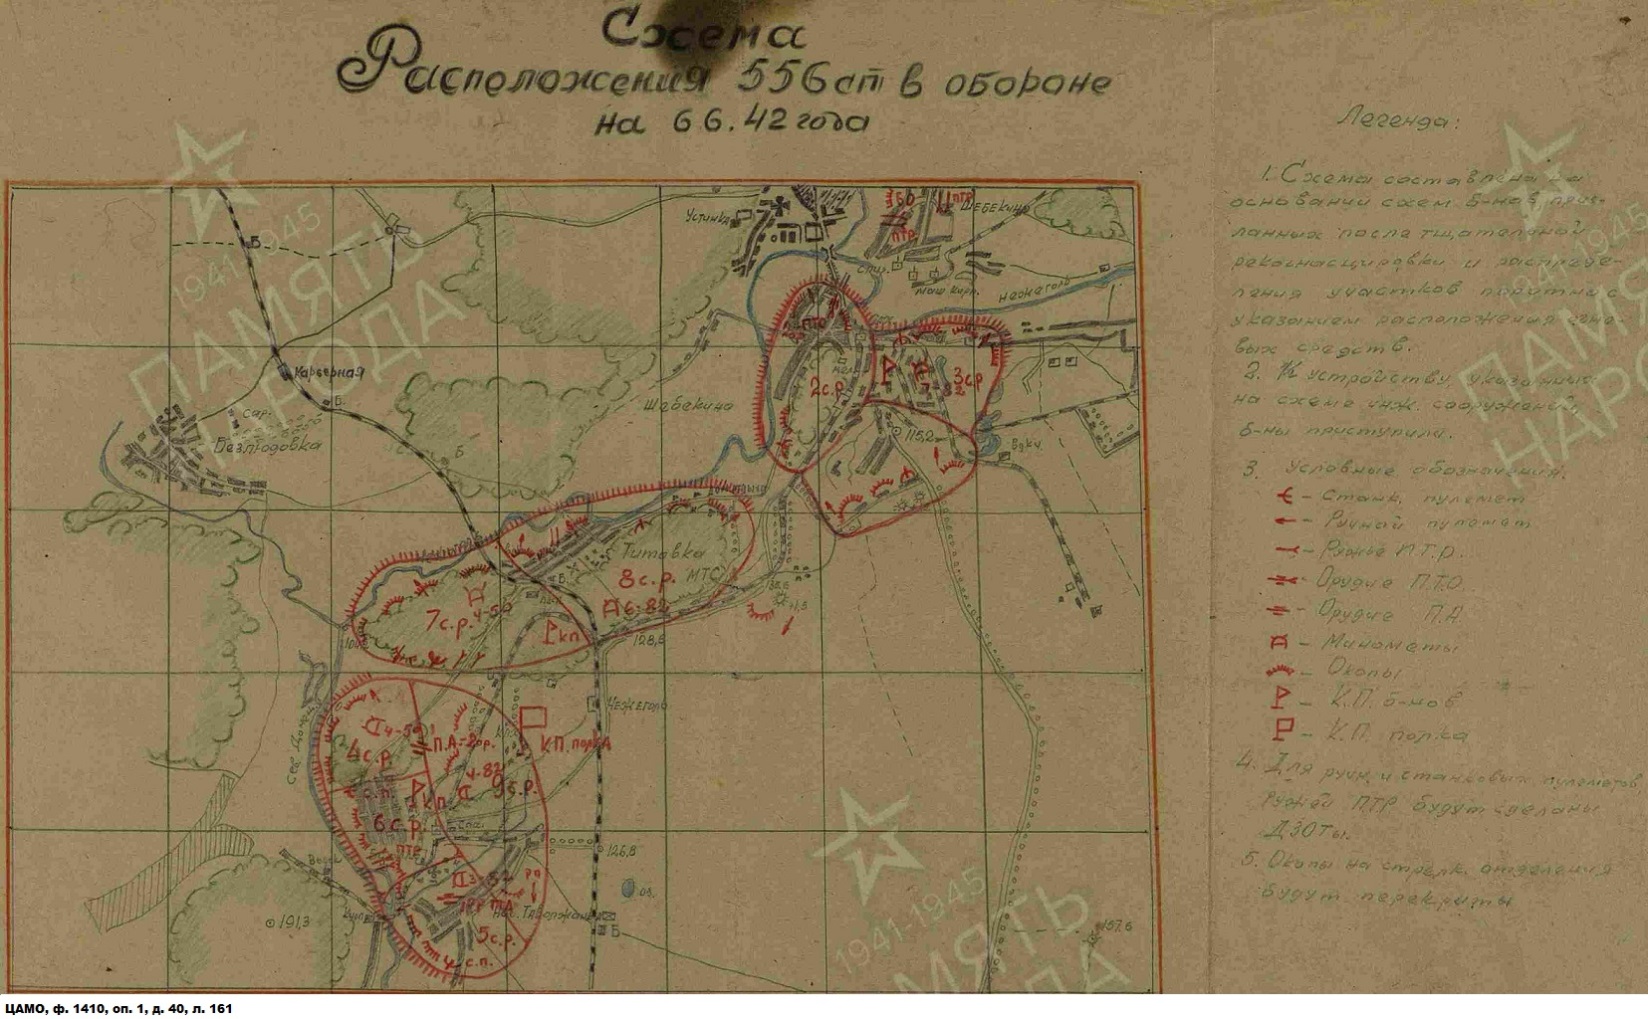 Схема
Расположения 556 сп в обороне
на 6 6. 42 года
Легенда:
1. Схема составлена на
основании схем б-нов, прис-
ланных после тщательной
рекогнасцировки и распреде-
ления участков поротно с
указанием расположения огне-
вых средств.
2. К устройству, указанных
на схеме инж. сооружений,
б-ны приступили.
3. Условные обозначения.
- Станк. пулемет
- Ручной пулемет
- Ружье П.Т.Р.
- Орудие П.Т.О.
- Орудие П.А.
- Минометы
- Окопы
- К.П. б-нов
- К.П. полка
4. Для ручн. и станковых пулеметов,
ружей ПТР будут сделаны
ДЗОТы.
5. Окопы на стрелк. отделения
будут перекрыты
Устинка
ПТР
Шебекино
ПТР
маш кирп.
Нежеголь
Б
Карьерная
Б
Сар.
Безлюдовка
Б
ПТО
2 с.р.
3 с.р
Шебекино
115,2
Титовка
8 с.р.
МТС
6-82
7 с.р.
4-50
Б
КП
128,6
Нежеголь
Сев Донец
4-50
4 с.р.
П.А.
К.П. полка
4-82
9 с.р.
КП
6 с.р.
ПТР
126,8
оз.
191,3
5 с.р.
с.п.
Б
157.6
1941-1945
ПАМЯТЬ
НАРОДА
1941-1945
ПАМЯТЬ
НАРОДА
1941-1945
ПАМЯТЬ
НАРОДА
ЦАМО, ф. 1410, оп. 1, д. 40, л. 161